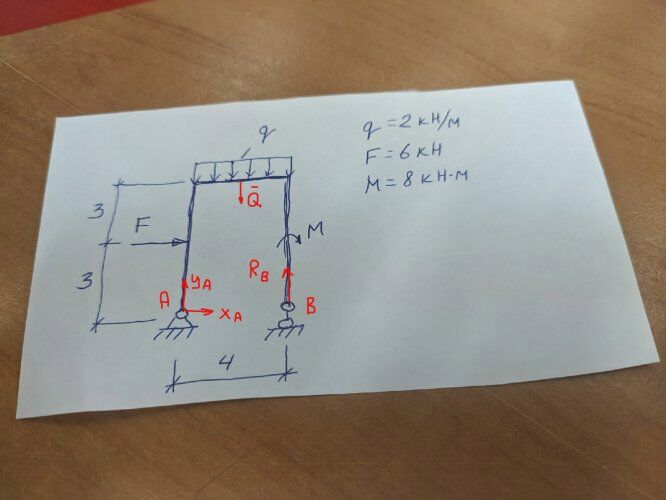 q
q = 2 кН/м
F = 6 кН
М = 8 кН·м
3
F
Q̄
M
3
R_B
A
y_A
x_A
B
4